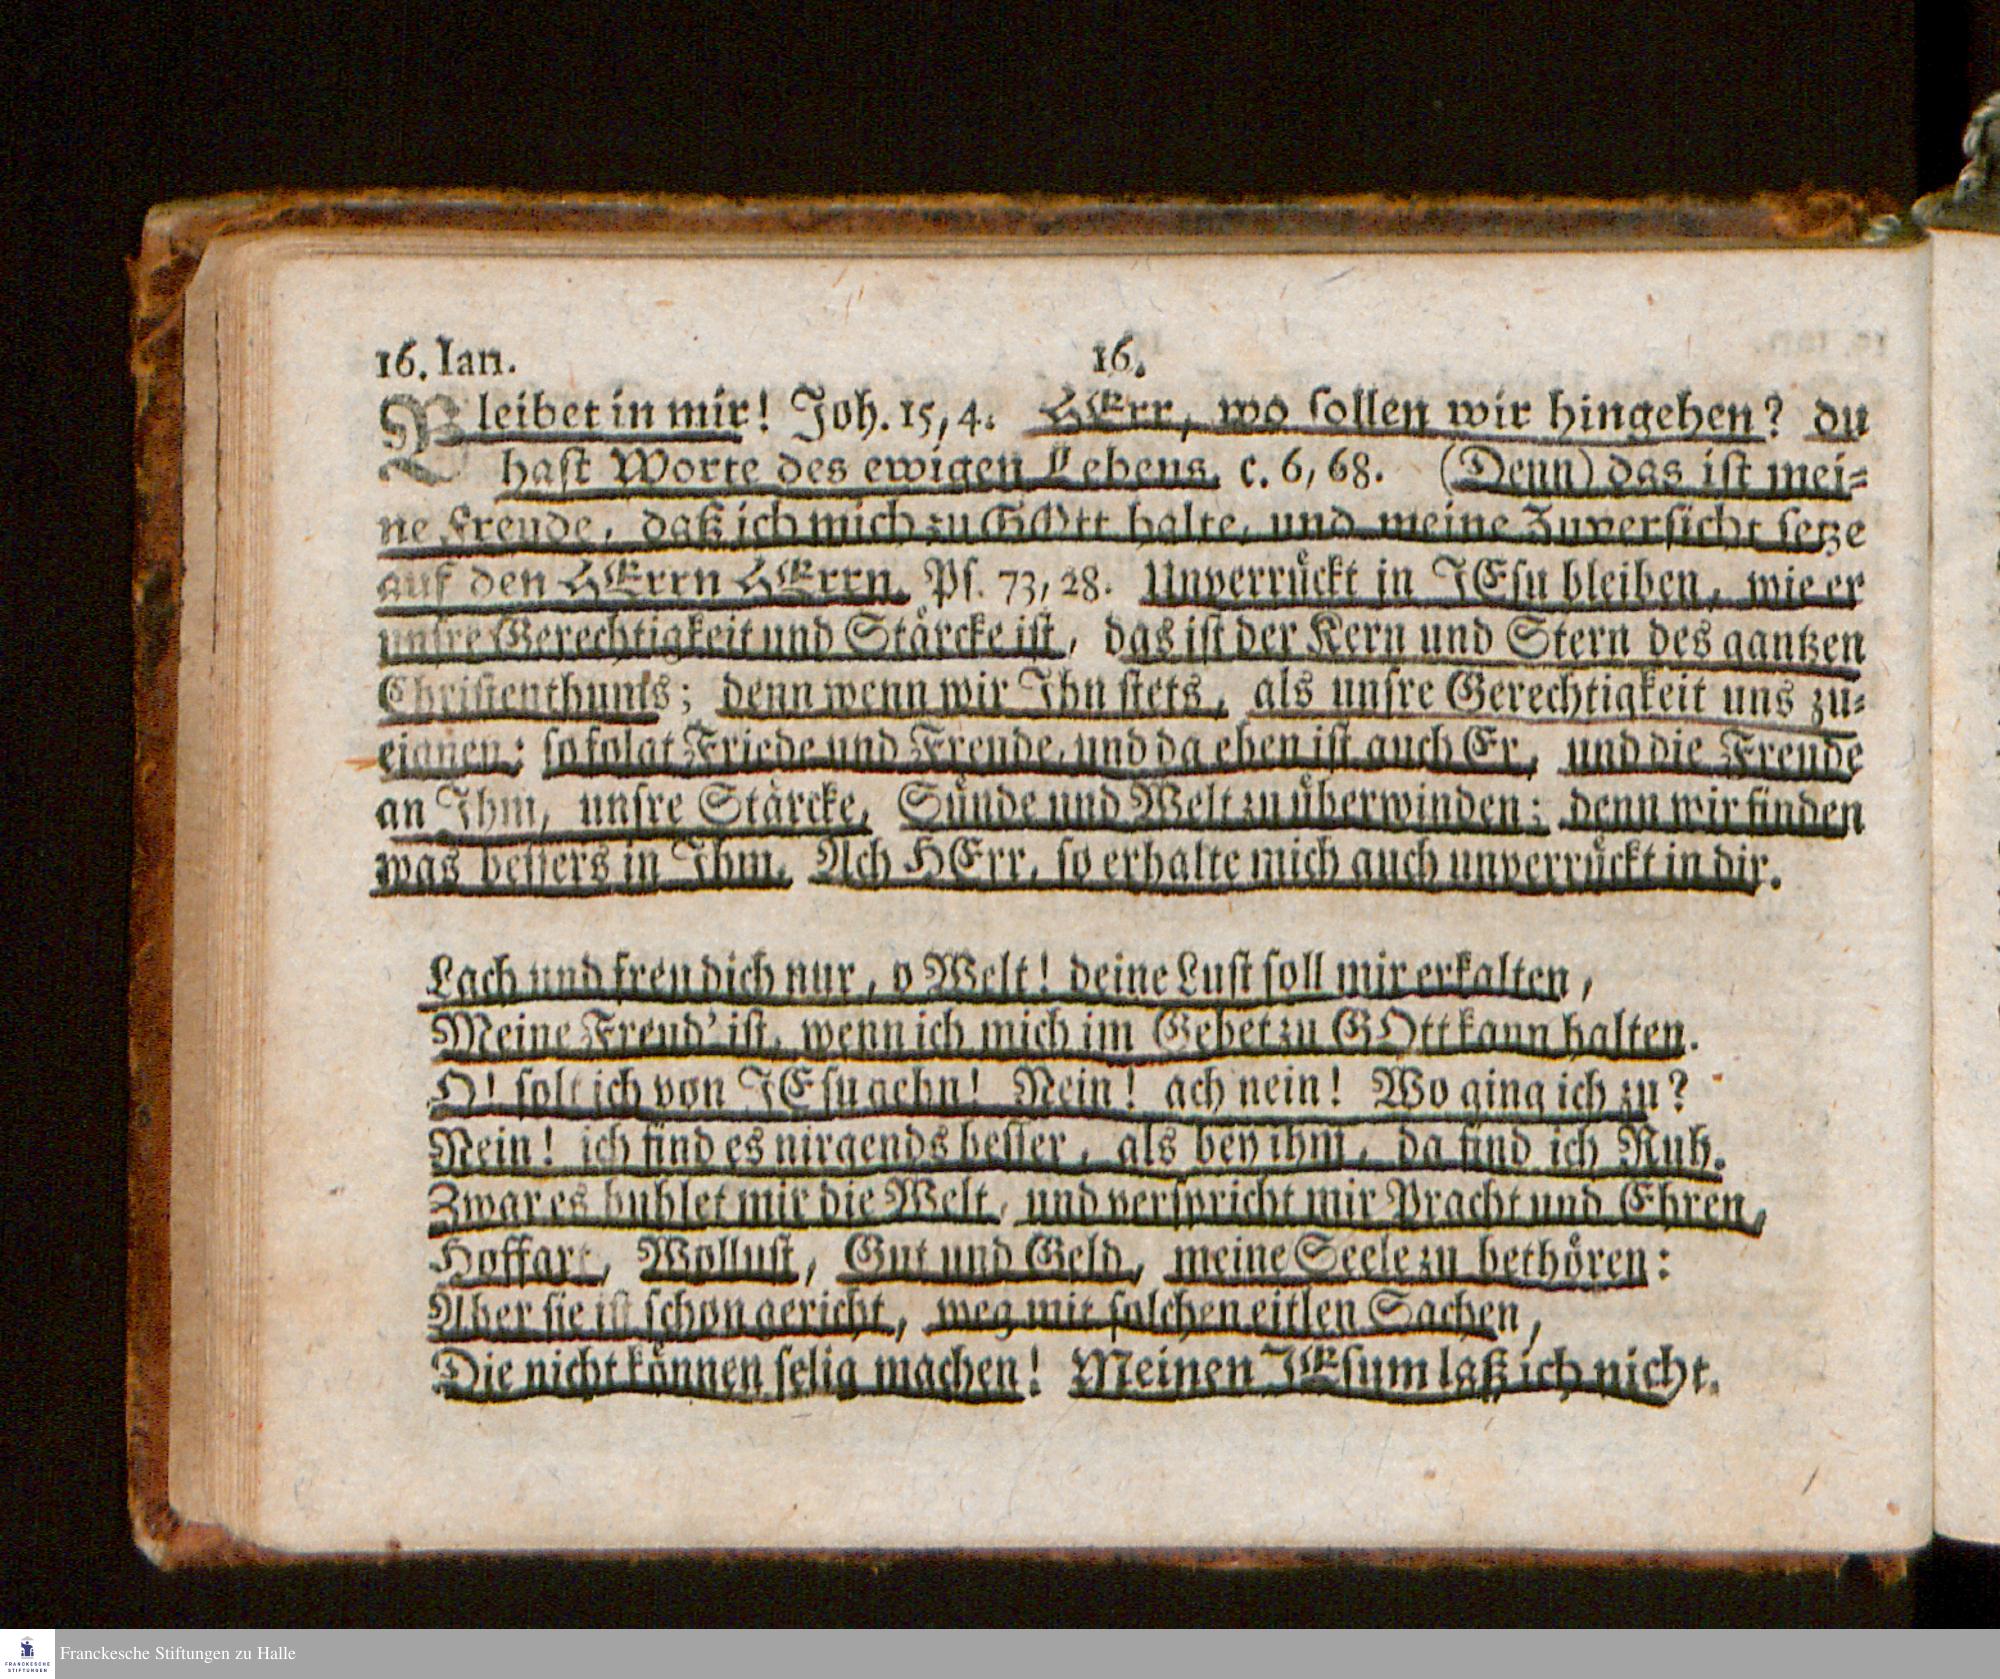 16. Ian. 16.
Bleibet in mir! Joh. 15, 4. HErr, wo sollen wir hingehen? du
hast Worte des ewigen Lebens. c. 6, 68. (Denn) das ist mei-
ne Freude, daß ich mich zu GOtt halte, und meine Zuversicht setze
auf den HErrn HErrn. Ps. 73, 28. Unverrückt in JEsu bleiben, wie er
unsre Gerechtigkeit und Stärcke ist, das ist der Kern und Stern des gantzen
Christenthums; denn wenn wir Ihn stets, als unsre Gerechtigkeit uns zu-
eignen; so folgt Friede und Freude, und da eben ist auch Er, und die Freude
an Ihm, unsre Stärcke, Sünde und Welt zu überwinden; denn wir finden
was bessers in Ihm. Ach HErr, so erhalte mich auch unverrückt in dir.
Lach und freu dich nur, o Welt! deine Lust soll mir erkalten,
Meine Freud' ist, wenn ich mich im Gebet zu GOtt kann halten.
O! solt ich von JEsu gehn! Nein! ach nein! Wo ging ich zu?
Nein! ich find es nirgends besser, als bey ihm, da find ich Ruh.
Zwar es buhlet mir die Welt, und verspricht mir Pracht und Ehren,
Hoffart, Wollust, Gut und Geld, meine Seele zu bethören:
Aber sie ist schon gericht, weg mit solchen eitlen Sachen,
Die nicht können selig machen! Meinen JEsum laß ich nicht.
FRANCKESCHE
STIFTUNGEN
Franckesche Stiftungen zu Halle